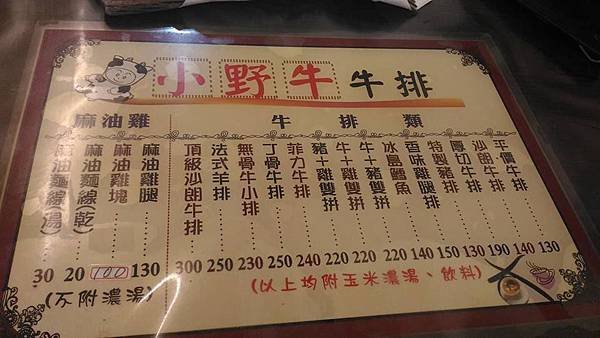 小野牛牛排
牛排類
平價牛排 130
沙朗牛排 140
厚切牛排 190
特製豬排 130
香味雞腿排 150
冰島鱈魚 140
牛+豬雙拼 220
牛+雞雙拼 220
豬+雞雙拼 220
菲力牛排 240
丁骨牛排 250
無骨牛小排 230
法式羊排 250
頂級沙朗牛排 300
(以上均附玉米濃湯、飲料)
麻油雞
麻油雞腿 130
麻油雞塊 100
麻油麵線(乾) 20
麻油麵線(湯) 30
(不附濃湯)